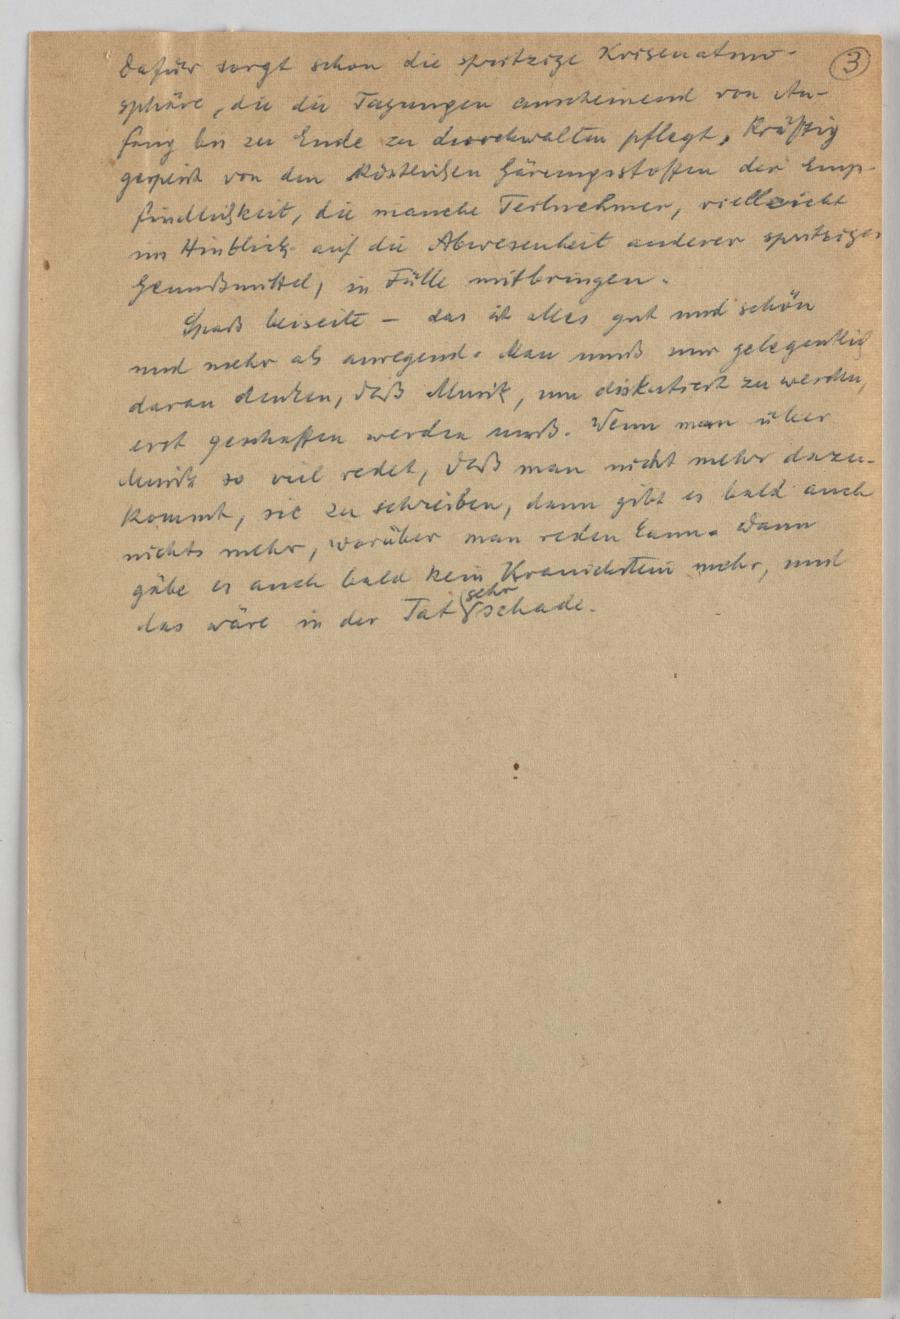 ③
Dafür sorgt schon die spritzige Krisenatmo-
sphäre, die die Tagungen anscheinend von An-
fang bis zu Ende zu durchwalten pflegt, kräftig
gespeist von den köstlichen Gärungsstoffen der Emp-
findlichkeit, die manche Teilnehmer, vielleicht
im Hinblick auf die Abwesenheit anderer spritziger
Genußmittel, in Fülle mitbringen.
Spaß beiseite – das ist alles gut und schön
und mehr als anregend. Man muß nur gelegentlich
daran denken, daß Musik, um diskutiert zu werden,
erst geschaffen werden muß. Wenn man über
Musik so viel redet, daß man nicht mehr dazu-
kommt, sie zu schreiben, dann gibt es bald auch
nichts mehr, worüber man reden kann. Dann
gäbe es auch bald kein Kranichstein mehr, und
das wäre in der Tat sehr schade.